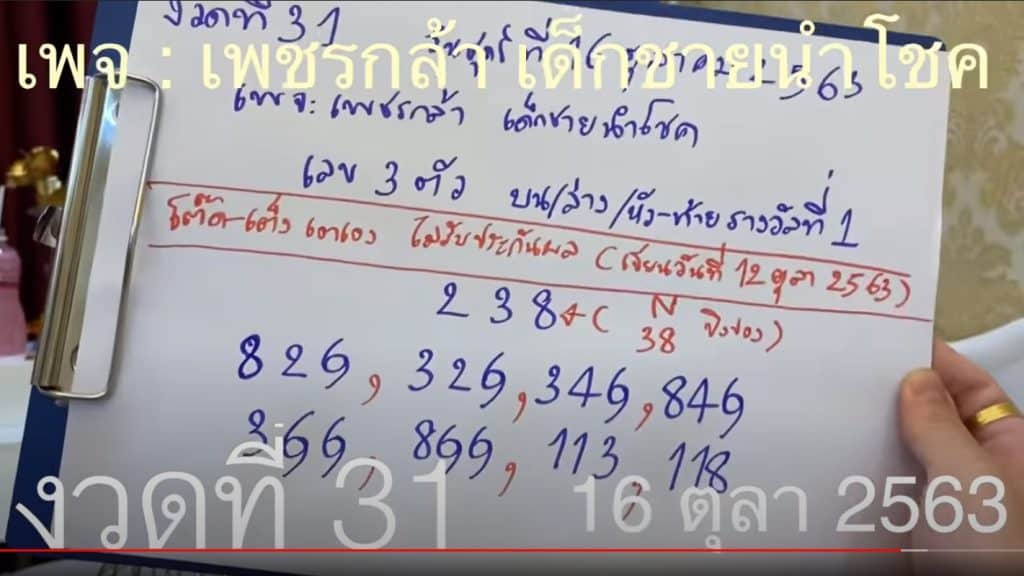 งวดที่ 31
วันศุกร์ ที่ 16 ตุลาคม 2563
เพจ : เพชรกล้า เด็กชายนำโชค
เพจ: เพชรกล้า เด็กชายนำโชค
เลข 3 ตัว บน/ล่าง/หัว-ท้าย รางวัลที่ 1
โต๊ด-เต็ง เอาเอง ไม่รับประกันผล (เขียนวันที่ 12 ตุลา 2563)
238 ( N
38
826, 326, 346, 846
366, 866, 113, 118
งวดที่ 31 16 ตุลา 2563